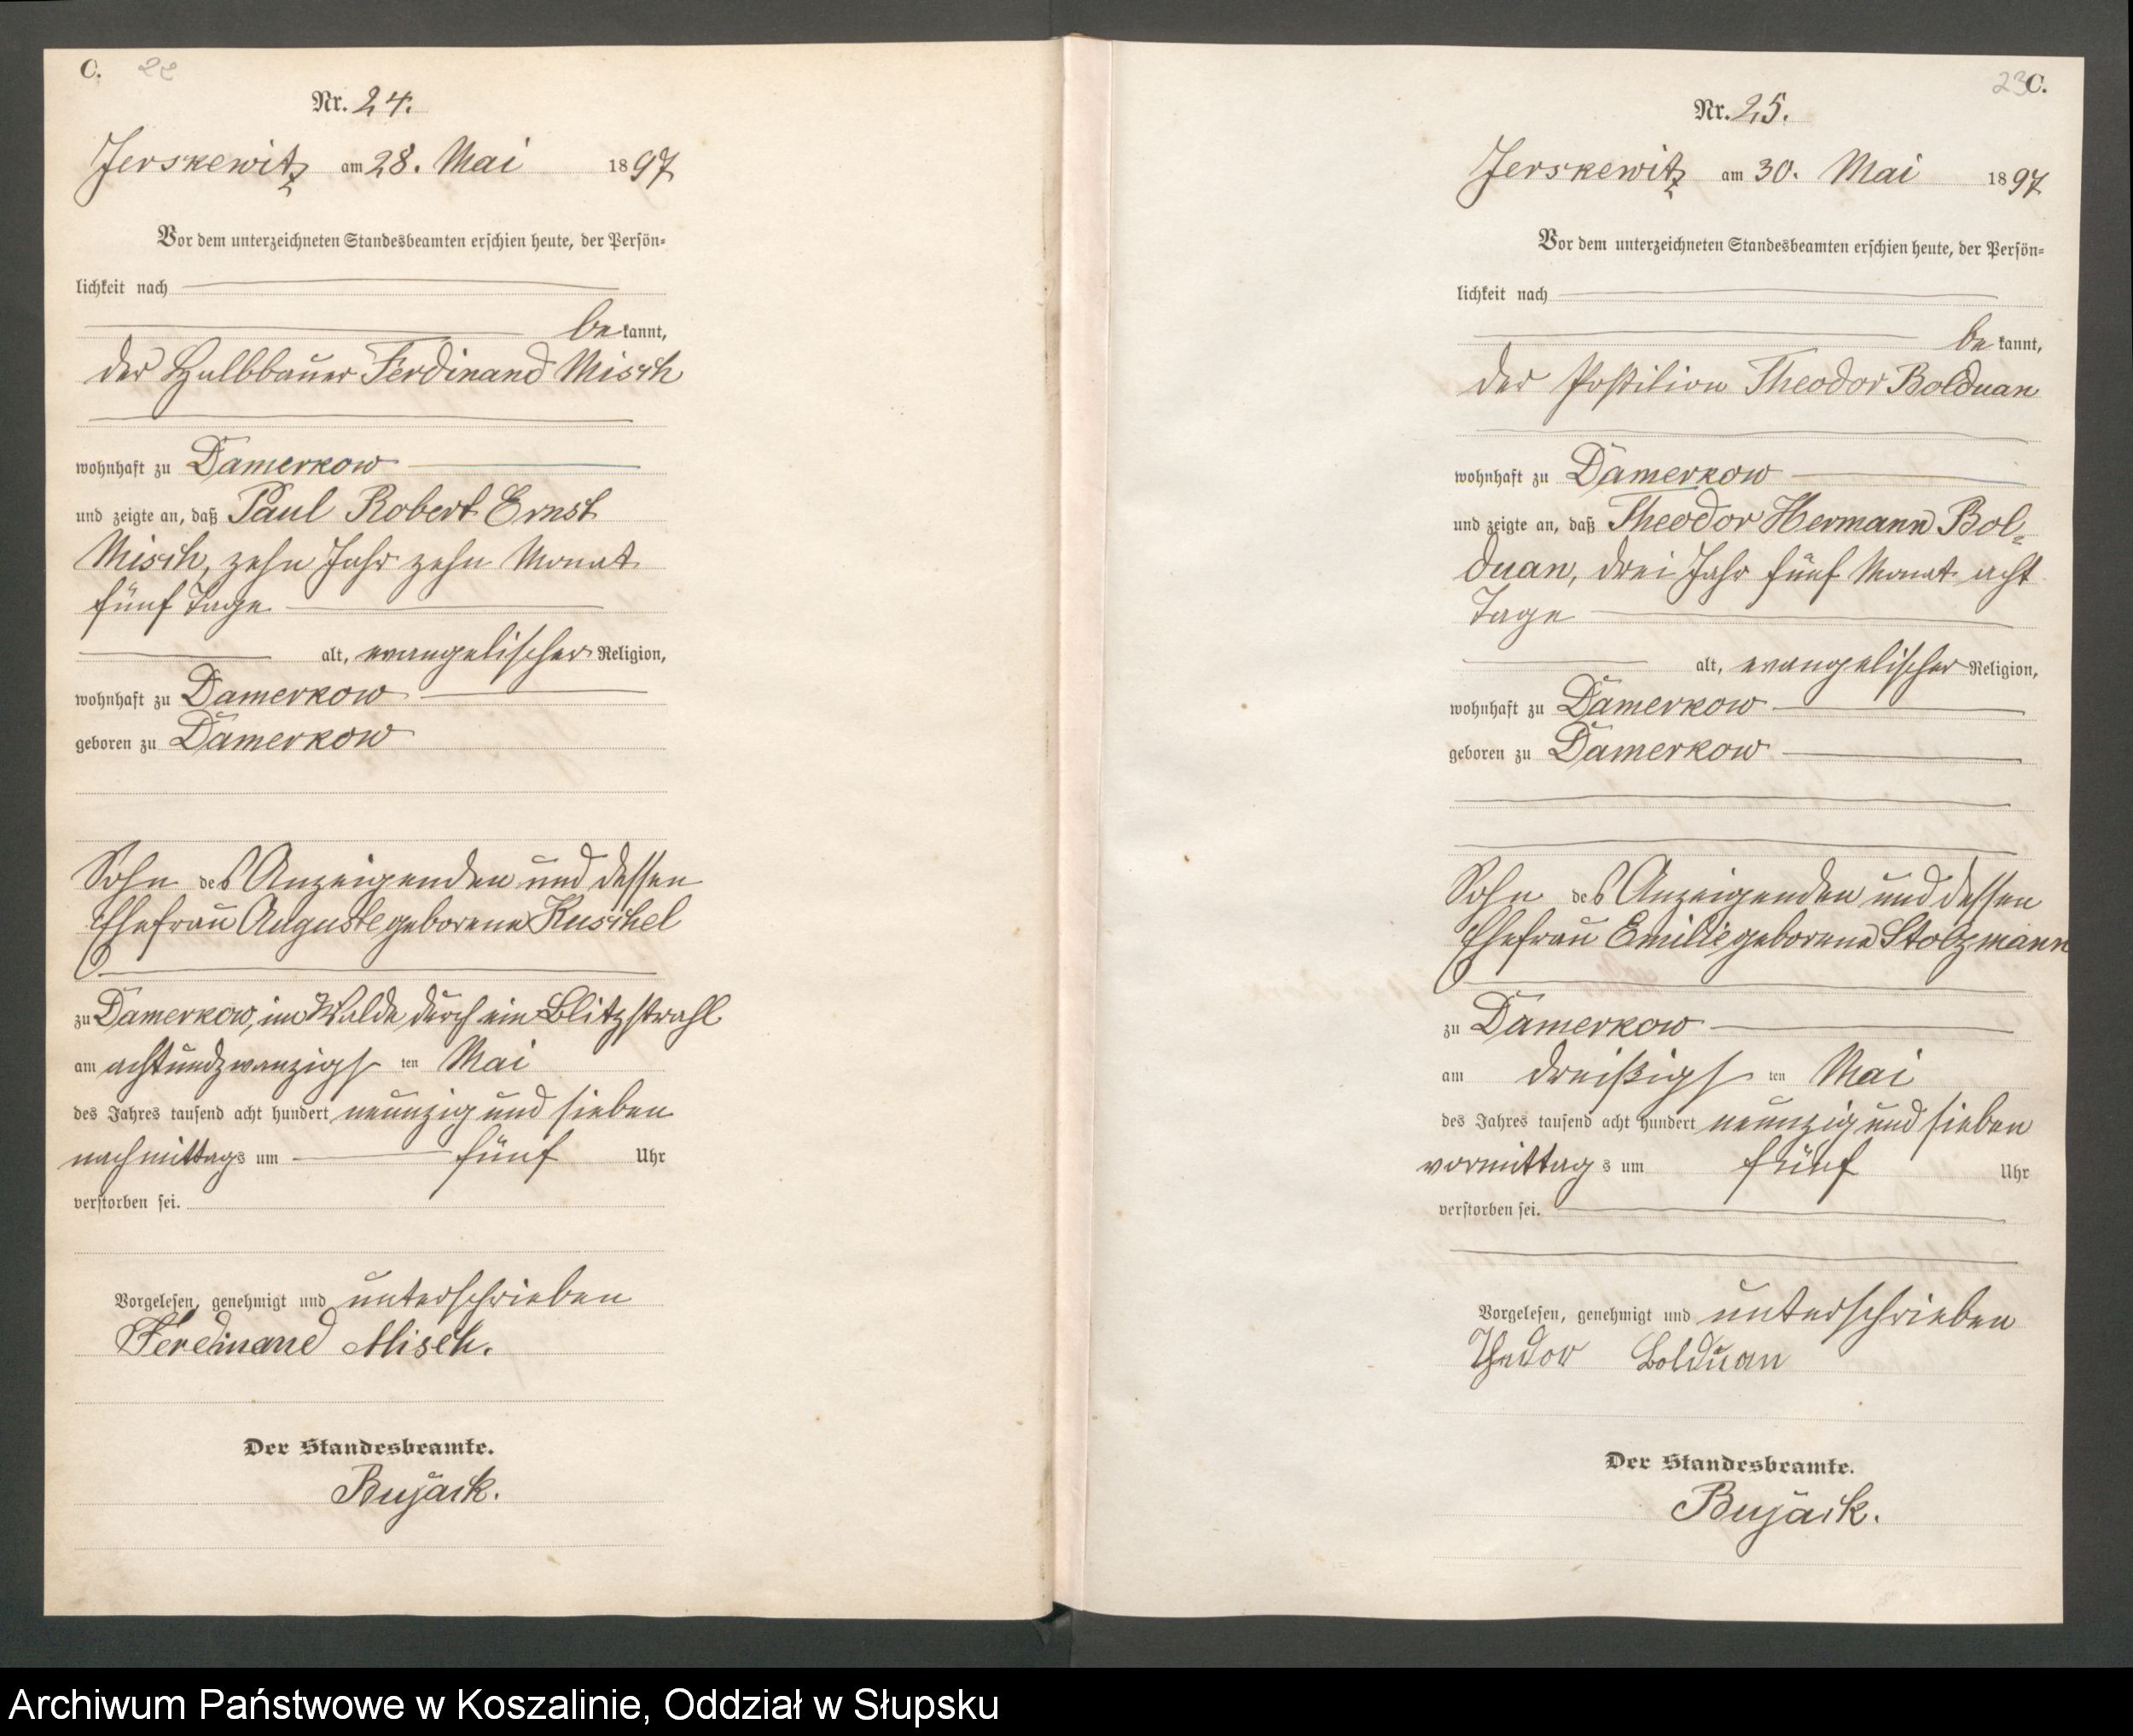 C. 22
Nr. 24.
Jerskewitz am 28. Mai 1897
Vor dem unterzeichneten Standesbeamten erschien heute, der Persön-
lichkeit nach
be kannt,
der Halbbauer Ferdinand Misch
wohnhaft zu Damerkow
und zeigte an, daß Paul Robert Ernst
Misch, zehn Jahr zehn Monat
fünf Tage
alt, evangelischer Religion,
wohnhaft zu Damerkow
geboren zu Damerkow
Sohn des Anzeigenden und dessen
Ehefrau Auguste geborene Kuschel
zu Damerkow, im Walde durch ein Blitzstrahl
am achtundzwanzigs ten Mai
des Jahres tausend acht hundert neunzig und sieben
nachmittags um fünf Uhr
verstorben sei.
Vorgelesen, genehmigt und unterschrieben
Ferdinand Misch.
Der Standesbeamte.
Bujack.
23 C.
Nr. 25.
Jerskewitz am 30. Mai 1897
Vor dem unterzeichneten Standesbeamten erschien heute, der Persön-
lichkeit nach
be kannt,
der Postilion Theodor Bolduan
wohnhaft zu Damerkow
und zeigte an, daß Theodor Hermann Bol-
duan, drei Jahr fünf Monat acht
Tage
alt, evangelischer Religion,
wohnhaft zu Damerkow
geboren zu Damerkow
Sohn des Anzeigenden und dessen
Ehefrau Emilie geborene Stolzmann
zu Damerkow
am dreißigs ten Mai
des Jahres tausend acht hundert neunzig und sieben
vormittags um fünf Uhr
verstorben sei.
Vorgelesen, genehmigt und unterschrieben
Thedor Bolduan
Der Standesbeamte.
Bujack.
Archiwum Państwowe w Koszalinie, Oddział w Słupsku